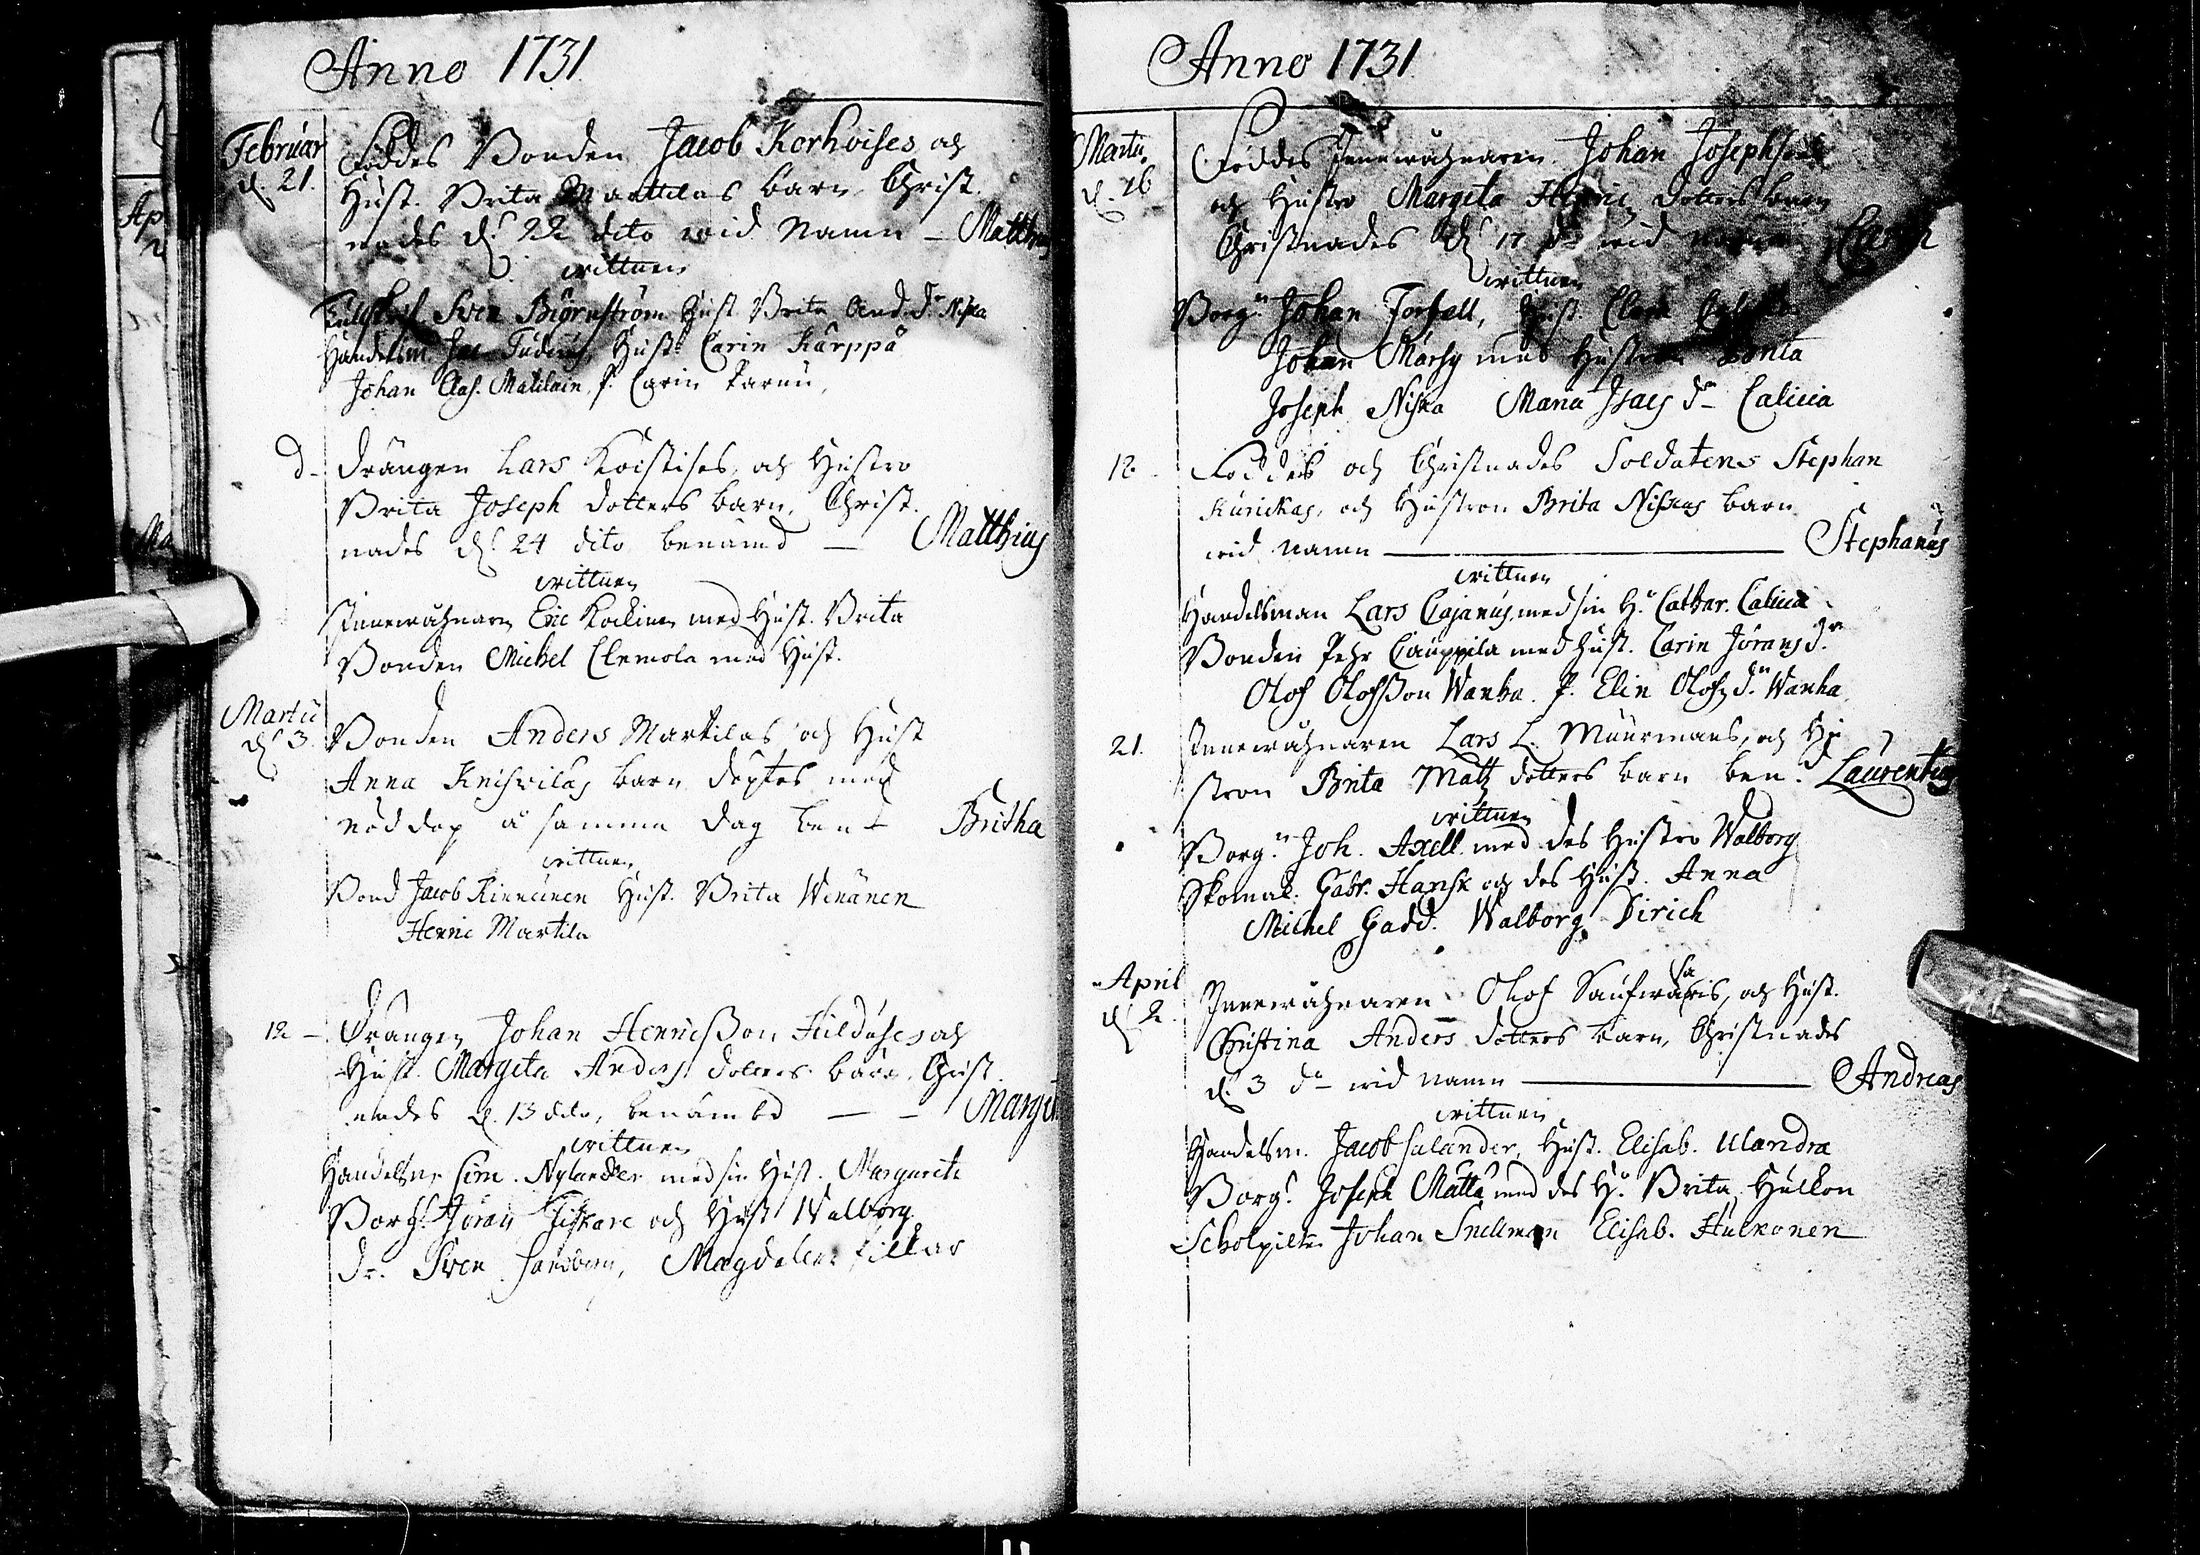 Anno 1731.
Februar
d. 21.
Föddes Bonden Jacob Korhoises och
Hust. Brita Marttilas barn Christ.
nades d. 22 dito wid Namn – Matthi
wittnen
Sven Biörnström Hust. Brita And. dr Niska
Handelsm. Jac Tuderus, Hust. Carin Kärppä
Johan Clas. Matilain, P. Carin
d– Drängen Lars Koistises, och Hustro
Brita Joseph dotters barn, Christ.
nades d. 24 dito benämd — Matthias
wittnen
Innewåhnaren Eric med Hust. Brita
Bonden Michel Clemola med Hust.
Martii
d. 3.
Bonden Anders Martilas och Hust
Anna barn döptes med
nöddop å samma dag ben Britha
wittnen
Bond Jacob Kinnunen Hust. Brita Wenänen
Henric Martila
12 – Drängen Johan Henricßon Huldúses och
Hust. Margeta Anders dotters barn. Christ.
nades d. 13 dito, benämbd — – Marge
wittnen
Handelsm. Sim. Nylander med sin Hust. Margareta
Borg. Jöran Fiskare och Hust Walborg
dr. Sven Sandberg, Magdalena
Anno 1731
Martii
d. 16
Föddes Innewåhnaren Johan Josephsons
och Hustro Margeta Henric dotters barn
Christnades d. 17 do wid namn Carin
wittnen
Borg. Johan Forsell, Hust. Clara
Johan med Hustron
Joseph Niska Maria Isacs dr Calicia
18. Föddes och Christnades Soldatens Stephan
Kurickas, och Hustron Brita Niskas barn
wid namn — Stephanús
wittnen
Handelsman Lars Cajanús, med sin H. Cathar. Calicia
Bonden Pehr Cauppila med hust. Carin Jörans dr
Olof Olofßon Wanha. P. Elin Olofs dr Wanha
21. Innewåhnaren Lars L. Muurmans, och Hu
stron Brita Matz dotters barn ben. Laurentius
wittnen
Borg. Joh. Axell med des Hustro Walborg
Skomak. Gabr. Hansk och des Hust. Anna
Michel Gadd. Walborg Dirich
April
d. 2.
Innewåhnaren Olof Saufwaris, och Hust.
sa
Christina Anders dotters barn, Christnades
d. 3 do wid namn — Andreas
wittnen
Handelsm. Jacob Salander, Hust. Elisab. Ulandra
Borg. Joseph Mattú med des H. Brita Hulkon
Scholpilten Johan Snellman Elisab. Hulkonen